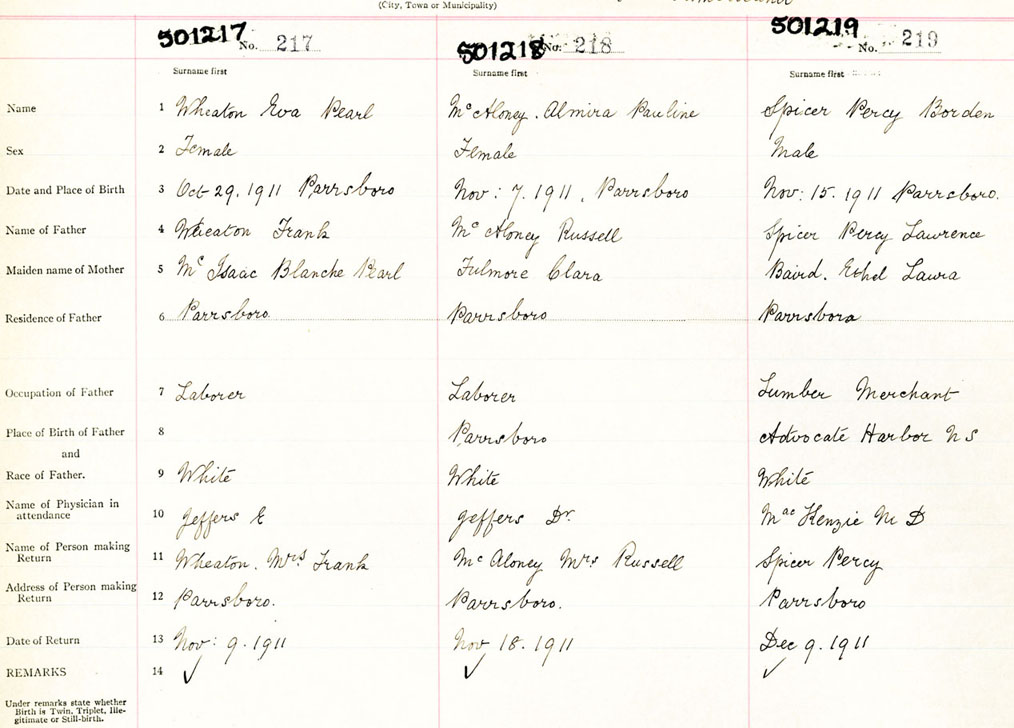 (City, Town or Municipality)
501217 No. 217 501218 No. 218 501219 No. 219
Surname first Surname first Surname first
Name 1 Wheaton Eva Pearl McAloney. Almira Pauline Spicer Percy Borden
Sex 2 Female Female Male
Date and Place of Birth 3 Oct 29. 1911 Parrsboro Nov: 7. 1911, Parrsboro Nov: 15. 1911 Parrsboro.
Name of Father 4 Wheaton Frank McAloney Russell Spicer Percy Lawrence
Maiden name of Mother 5 McIsaac Blanche Pearl Fulmore Clara Baird. Ethel Laura
Residence of Father 6 Parrsboro Parrsboro Parrsboro
Occupation of Father 7 Laborer Laborer Lumber Merchant
Place of Birth of Father 8 Parrsboro Advocate Harbor NS
and
Race of Father. 9 White White White
Name of Physician in
attendance 10 Jeffers E Jeffers Dr. MacKenzie M D
Name of Person making
Return 11 Wheaton. Mrs Frank McAloney Mrs Russell Spicer Percy
Address of Person making
Return 12 Parrsboro. Parrsboro. Parrsboro
Date of Return 13 Nov: 9. 1911 Nov 18. 1911 Dec 9. 1911
REMARKS 14 ✓ ✓ ✓
Under remarks state whether
Birth is Twin, Triplet, Ille-
gitimate or Still-birth.